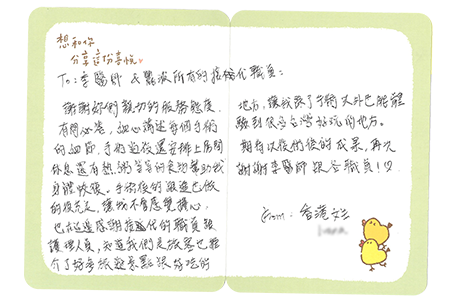 想和你
分享這份喜悅。
To: 李醫師 & 麗波所有的 化職員:
謝謝妳們親切的服務態度,
有問必答,細心講述每個手術
的細節,手術過後還安排上房間
休息還有
身體恢復。手術後的跟進也做
的很充足,讓我不會感覺擔心,
也在這感謝 的職員跟
護理人員,知道我們是旅客也推
介了好多旅遊景點跟好吃的
地方,讓我除了手術之外也能體
驗到很多台灣好玩的地方。
期待以後術後的成果,再次
謝謝李醫師跟全職員!♡
From: 香港